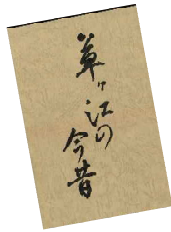 草ヶ江の今昔